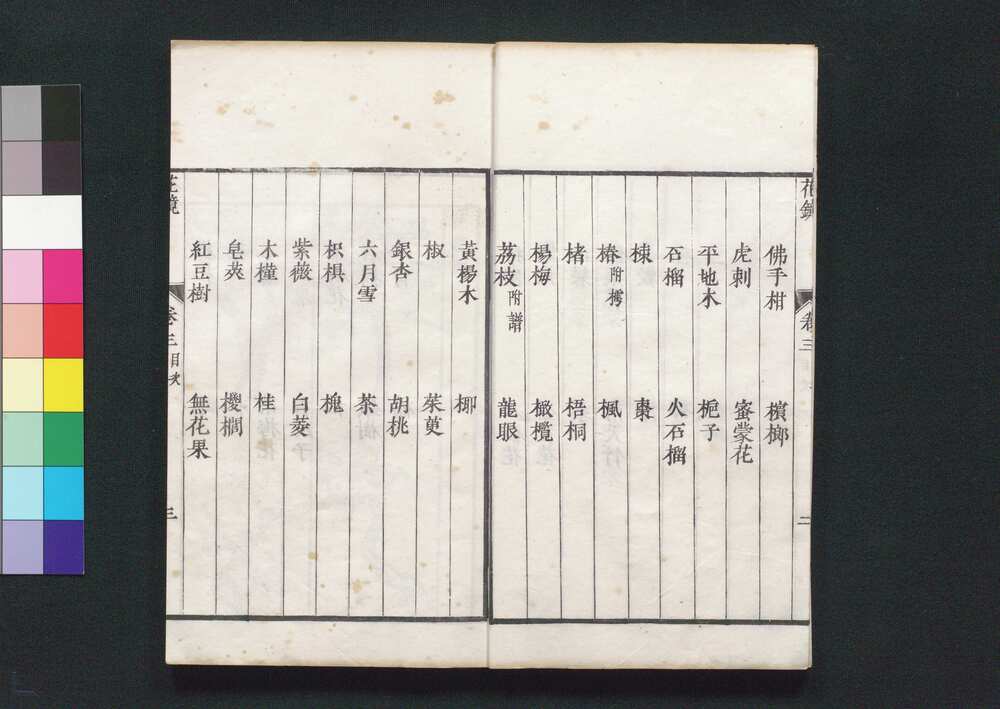 花鏡 卷三 二
佛手柑 檳榔
虎刺 蜜蒙花
平地木 梔子
石榴 火石榴
楝 棗
椿附樗 楓
楮 梧桐
楊梅 橄欖
荔枝附譜 龍眼
黃楊木 柳
椒 茱萸
銀杏 胡桃
六月雪 茶
枳椇 槐
紫薇 白菱
木槿 桂
皂莢 櫻櫚
紅豆樹 無花果
花鏡 卷三目次 三